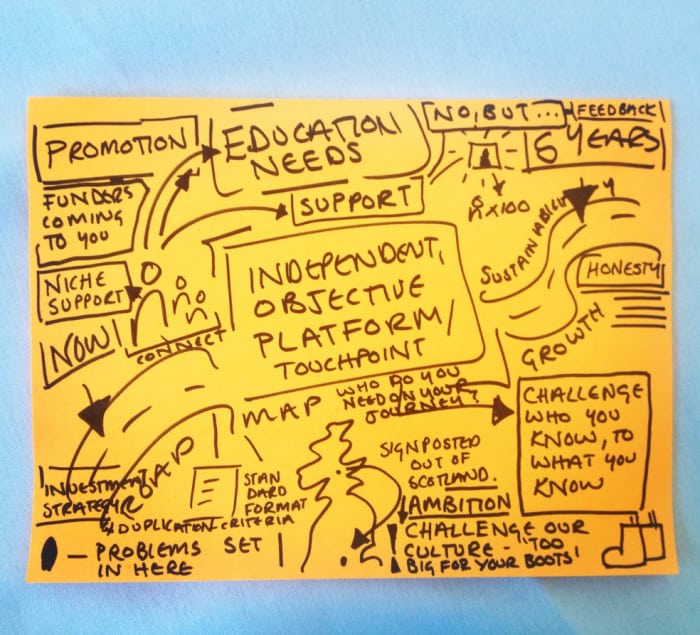 PROMOTION
EDUCATION
NEEDS
NO, BUT...
FEEDBACK
6 YEARS
FUNDERS
COMING
TO YOU
SUPPORT
x100
SUSTAINABILITY
NICHE
SUPPORT
NOW
CONNECT
INDEPENDENT,
OBJECTIVE
PLATFORM/
TOUCHPOINT
HONESTY
GROWTH
MAP
WHO DO YOU
NEED ON YOUR
JOURNEY?
CHALLENGE
WHO YOU
KNOW, TO
WHAT YOU
KNOW
SIGNPOSTED
OUT OF
SCOTLAND.
ROAD MAP
INVESTMENT
STRATEGY
STAN
DARD
FORMAT
& DUPLICATION CRITERIA
AMBITION
- PROBLEMS SET
IN HERE
! CHALLENGE OUR
CULTURE - 'TOO
BIG FOR YOUR BOOTS'